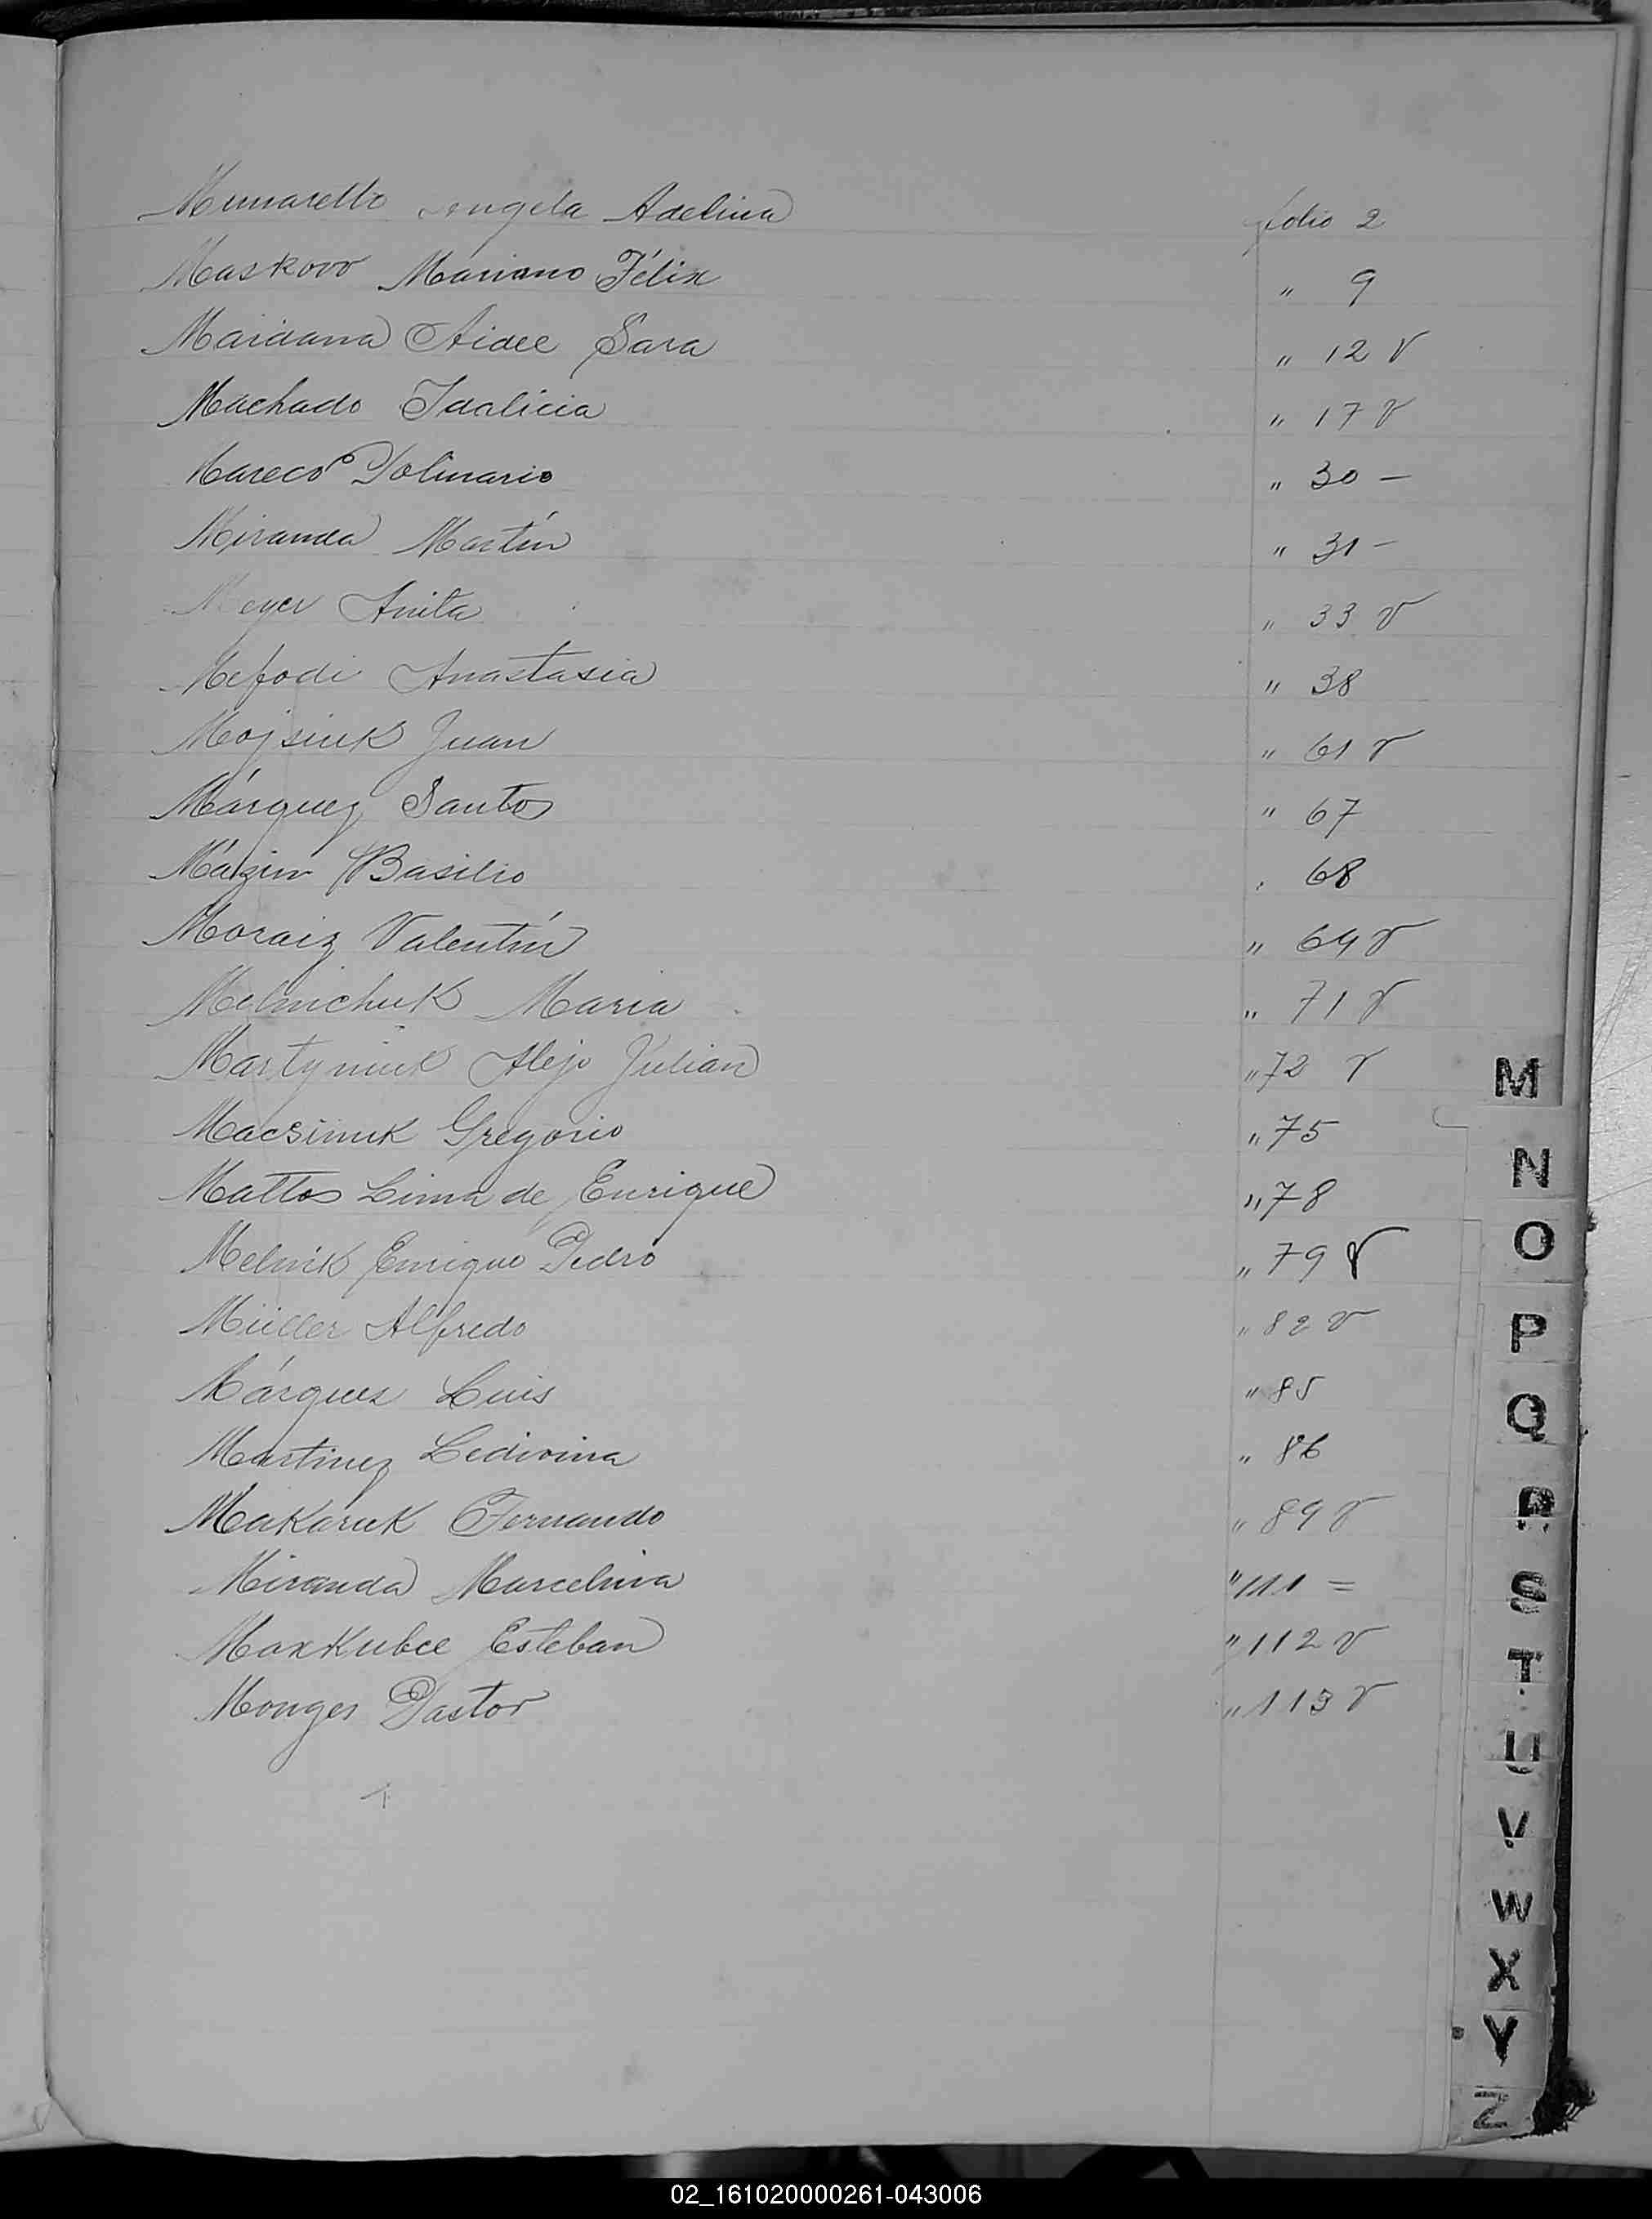 Munaretto Angela Adelina folio 2
Maskow Mariano Félix " 9
Maidana Aidee Sara " 12 v
Machado Idalicia " 17 v
Mareco Polinario " 30 -
Miranda Martín " 31 -
Meyer Anita " 33 v
Mefodi Anastasia " 38
Mojsiuk Juan " 61 v
Márquez Santos " 67
Mázin Basilio " 68
Moraiz Valentín " 69 v
Melnichuk Maria " 71 v
Martyniuk Alejo Julian " 72 v
Macsimuk Gregorio " 75
Mattos Lima de Enrique " 78
Melnik Enrique Pedro " 79 v
Müller Alfredo " 82 v
Márques Luis " 85
Martinez Ledivina " 86
Makaruk Fernando " 89 v
Miranda Marcelina " 111 =
Maxkubce Esteban " 112 v
Monges Pastor " 113 v
M
N
O
P
Q
R
S
T
U
V
W
X
Y
Z
02_161020000261-043006